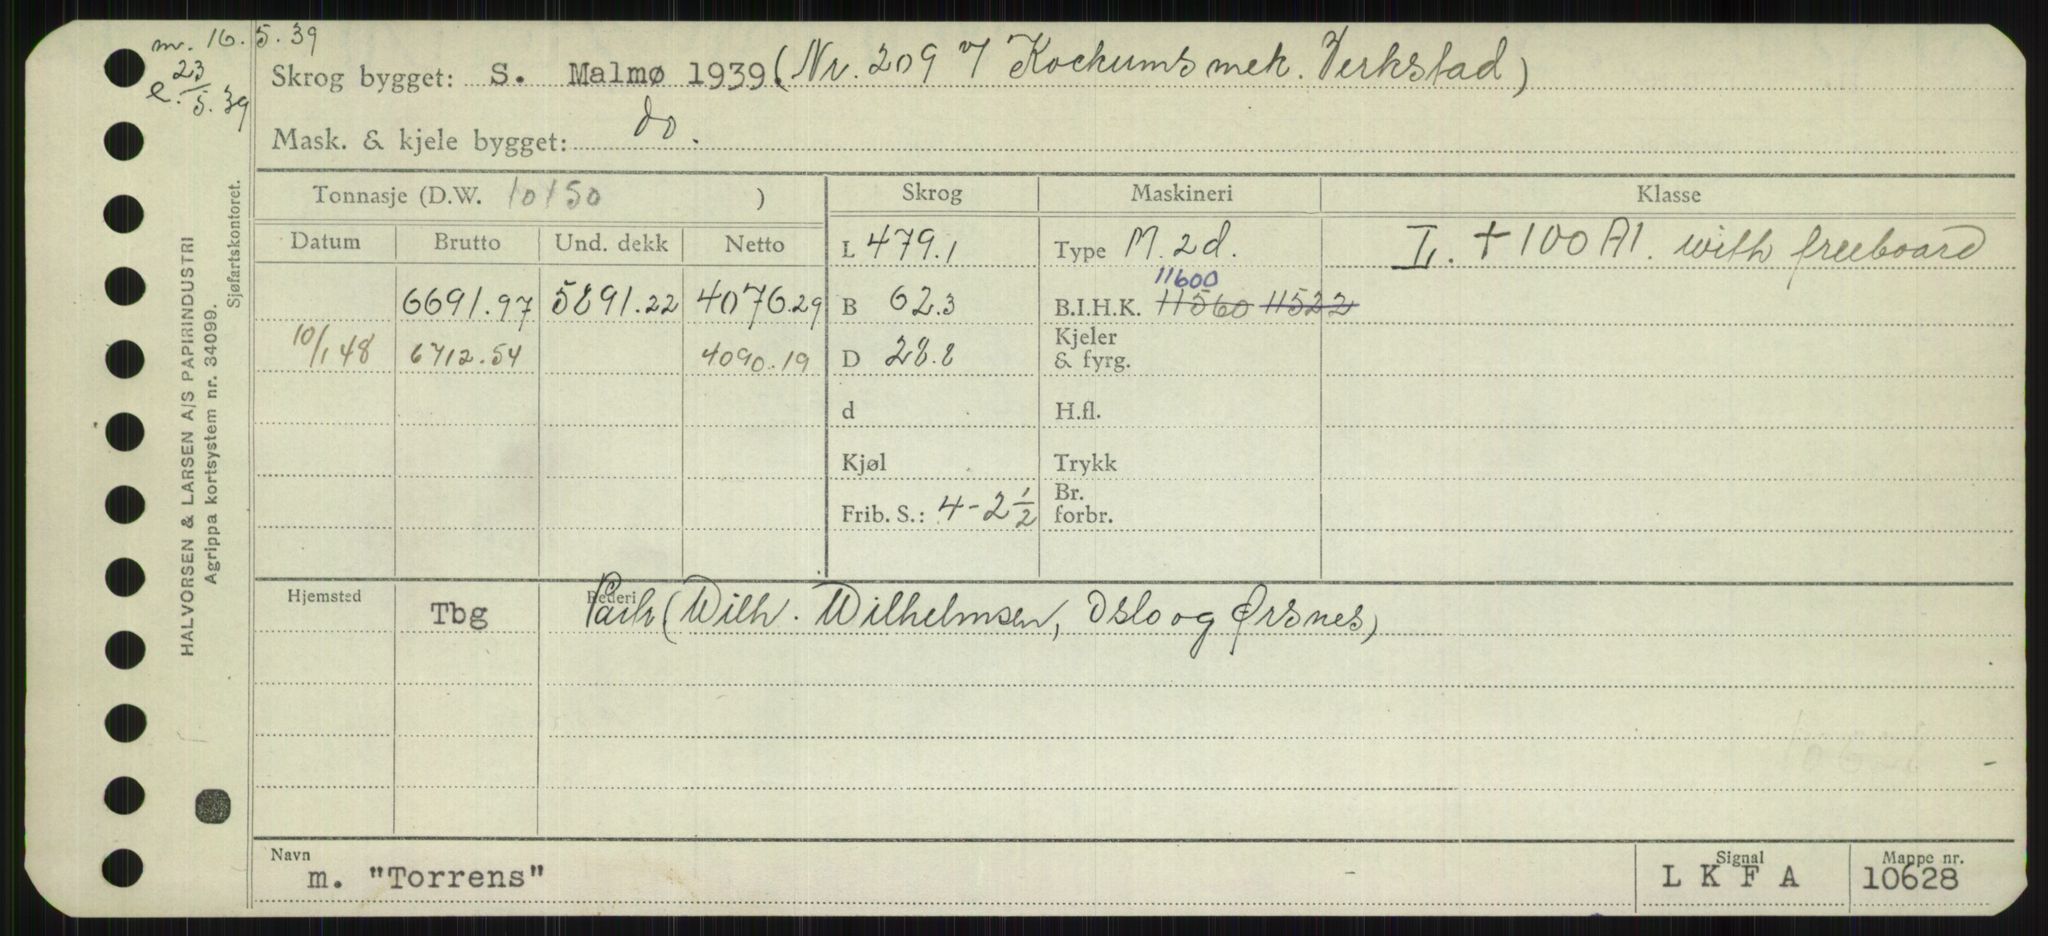 m. 16.5.39
e. 23/5.39
Skrog bygget: S. Malmø 1939. (Nr. 209 v/ Kockums mek. Verkstad)
Mask. & kjele bygget: do.
Tonnasje (D.W. 10150 )
Skrog
Maskineri
Klasse
Datum Brutto Und. dekk Netto
6691.97 5891.22 4076.29
10/1 48 6712.54 4090.19
L 479.1
B 62.3
D 28.8
d
Kjøl
Frib. S.: 4-2 1/2
Type M. 2d.
11600
B.I.H.K. 11560 11522
Kjeler
& fyrg.
H.fl.
Trykk
Br.
forbr.
L. + 100 A1. with freeboard
Hjemsted Rederi
Tbg (Wilh. Wilhelmsen, Oslo og Ørsnes)
Navn
m. "Torrens"
Signal
L K F A
Mappe nr.
10628
HALVORSEN & LARSEN A/S PAPIRINDUSTRI
Agrippa kortsystem nr. 34099.
Sjøfartskontoret.